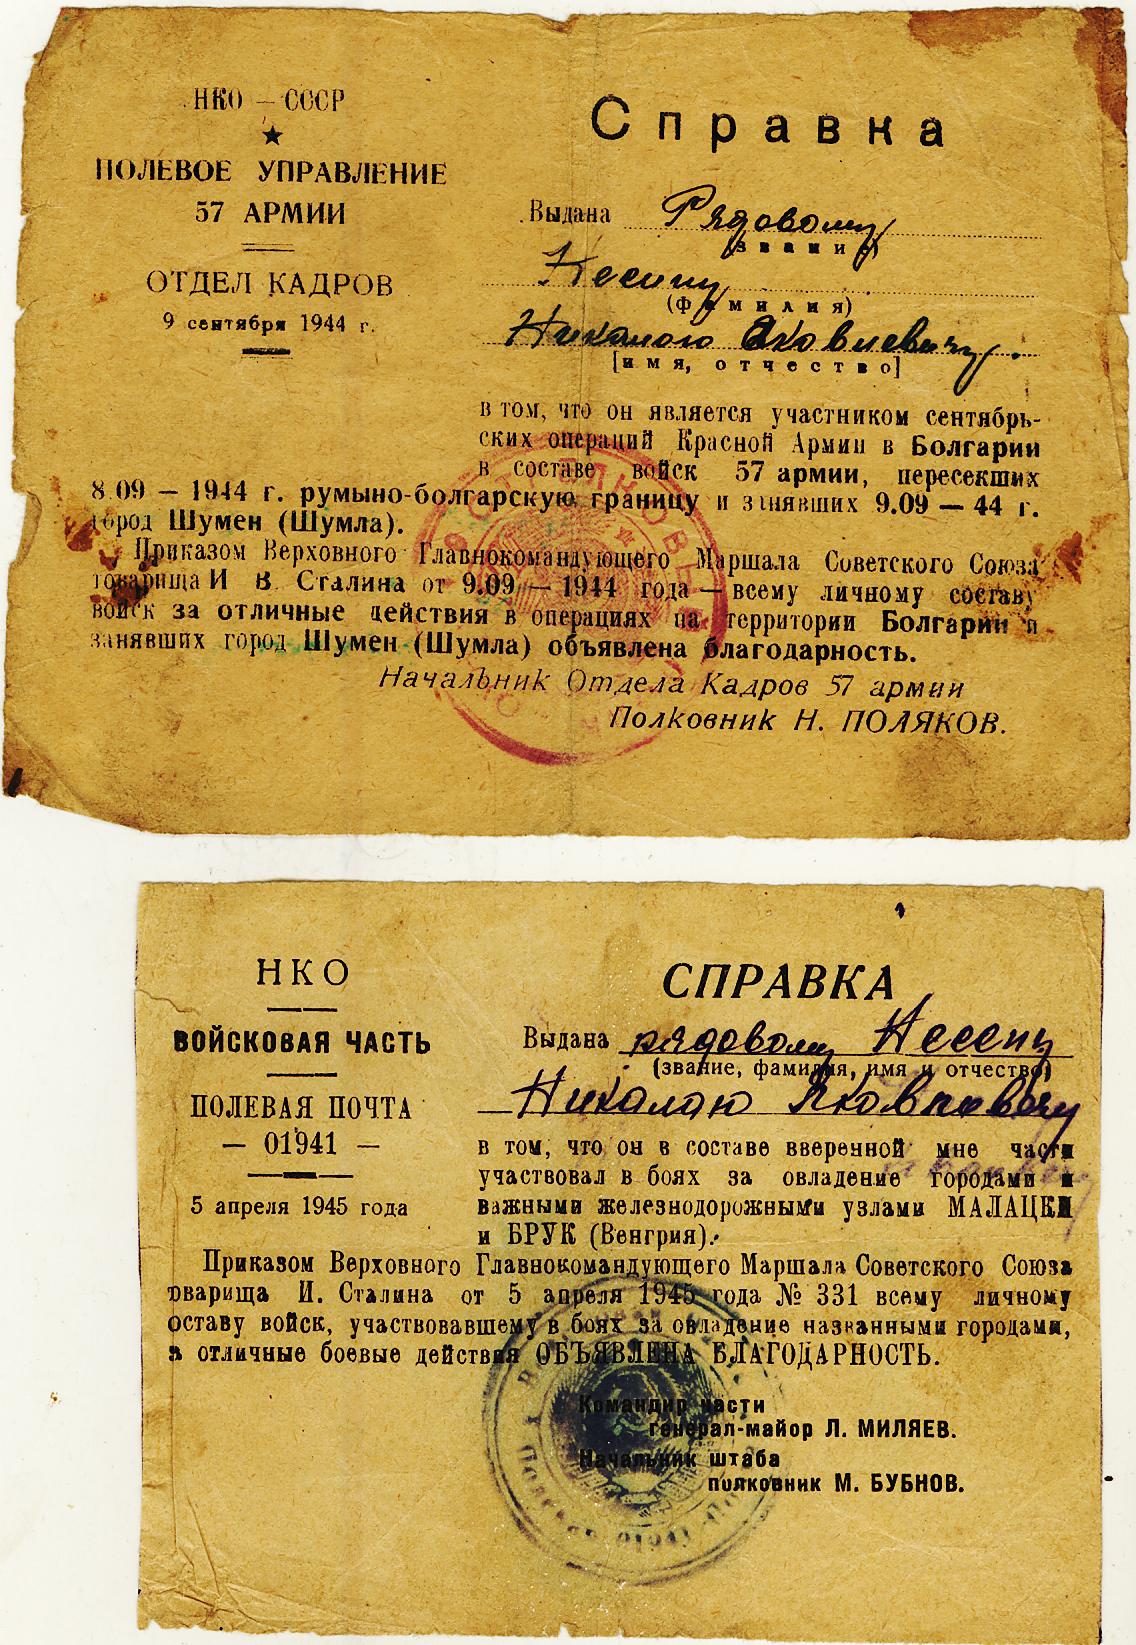 НКО — СССР
ПОЛЕВОЕ УПРАВЛЕНИЕ
57 АРМИИ
ОТДЕЛ КАДРОВ
9 сентября 1944 г.
Справка
Выдана Рядовому
(звание)
Несину
(фамилия)
Николаю Яковлевичу.
[имя, отчество]
в том, что он является участником сентябрь-
ских операций Красной Армии в Болгарии
в составе войск 57 армии, пересекших
8.09 — 1944 г. румыно-болгарскую границу и занявших 9.09 — 44 г.
город Шумен (Шумла).
Приказом Верховного Главнокомандующего Маршала Советского Союза
товарища И В. Сталина от 9.09 — 1944 года — всему личному составу
войск за отличные действия в операциях на территории Болгарии и
занявших город Шумен (Шумла) объявлена благодарность.
Начальник Отдела Кадров 57 армии
Полковник Н. ПОЛЯКОВ.
НКО
ВОЙСКОВАЯ ЧАСТЬ
ПОЛЕВАЯ ПОЧТА
— 01941 —
5 апреля 1945 года
СПРАВКА
Выдана рядовому Несену
(звание, фамилия, имя и отчество)
Николаю Яковлевичу
в том, что он в составе вверенной мне части
участвовал в боях за овладение городами и
важными железнодорожными узлами МАЛАЦКИ
и БРУК (Венгрия).
Приказом Верховного Главнокомандующего Маршала Советского Союза
товарища И. Сталина от 5 апреля 1945 года № 331 всему личному
оставу войск, участвовавшему в боях за овладение названными городами,
а отличные боевые действия ОБЪЯВЛЕНА БЛАГОДАРНОСТЬ.
Командир части
генерал-майор Л. МИЛЯЕВ.
Начальник штаба
полковник М. БУБНОВ.